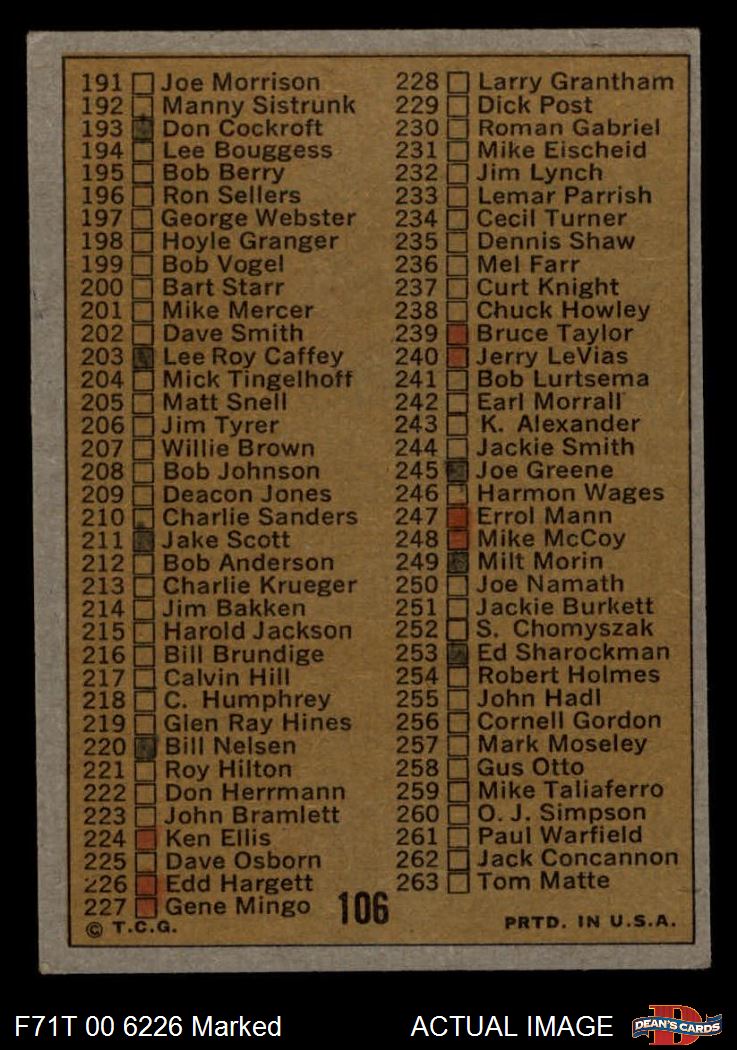 191 Joe Morrison
192 Manny Sistrunk
193 Don Cockroft
194 Lee Bouggess
195 Bob Berry
196 Ron Sellers
197 George Webster
198 Hoyle Granger
199 Bob Vogel
200 Bart Starr
201 Mike Mercer
202 Dave Smith
203 Lee Roy Caffey
204 Mick Tingelhoff
205 Matt Snell
206 Jim Tyrer
207 Willie Brown
208 Bob Johnson
209 Deacon Jones
210 Charlie Sanders
211 Jake Scott
212 Bob Anderson
213 Charlie Krueger
214 Jim Bakken
215 Harold Jackson
216 Bill Brundige
217 Calvin Hill
218 C. Humphrey
219 Glen Ray Hines
220 Bill Nelsen
221 Roy Hilton
222 Don Herrmann
223 John Bramlett
224 Ken Ellis
225 Dave Osborn
226 Edd Hargett
227 Gene Mingo
© T.C.G.
106
228 Larry Grantham
229 Dick Post
230 Roman Gabriel
231 Mike Eischeid
232 Jim Lynch
233 Lemar Parrish
234 Cecil Turner
235 Dennis Shaw
236 Mel Farr
237 Curt Knight
238 Chuck Howley
239 Bruce Taylor
240 Jerry LeVias
241 Bob Lurtsema
242 Earl Morrall
243 K. Alexander
244 Jackie Smith
245 Joe Greene
246 Harmon Wages
247 Errol Mann
248 Mike McCoy
249 Milt Morin
250 Joe Namath
251 Jackie Burkett
252 S. Chomyszak
253 Ed Sharockman
254 Robert Holmes
255 John Hadl
256 Cornell Gordon
257 Mark Moseley
258 Gus Otto
259 Mike Taliaferro
260 O. J. Simpson
261 Paul Warfield
262 Jack Concannon
263 Tom Matte
PRTD. IN U.S.A.
F71T 00 6226 Marked
ACTUAL IMAGE
D
DEAN'S CARDS